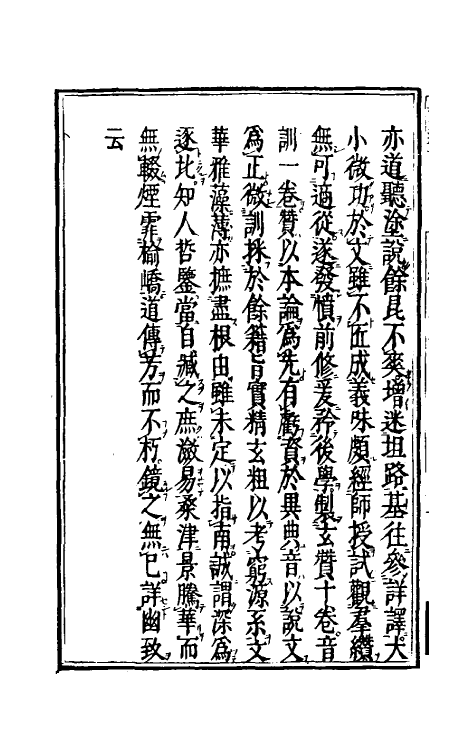 亦道聽塗說餘昆不爽增迷坦路基往參詳譯大
小微功於文雖不匠成義味頗經師授試觀羣纘
無可適從遂發憤前修爰矜後學製玄贊十卷音
訓一卷贊以本論為先有虧資於異典音以說文
為正微訓採於餘籍旨實精玄粗以考窮源系文
華雅藻薄亦摭盡根由雖未定以指南誠謂深為
逐比知人哲鑒當自臧之庶激易桑津景騰華而
無輟煙霏榆嶠道傳芳而不朽鏡之無已詳幽致
云